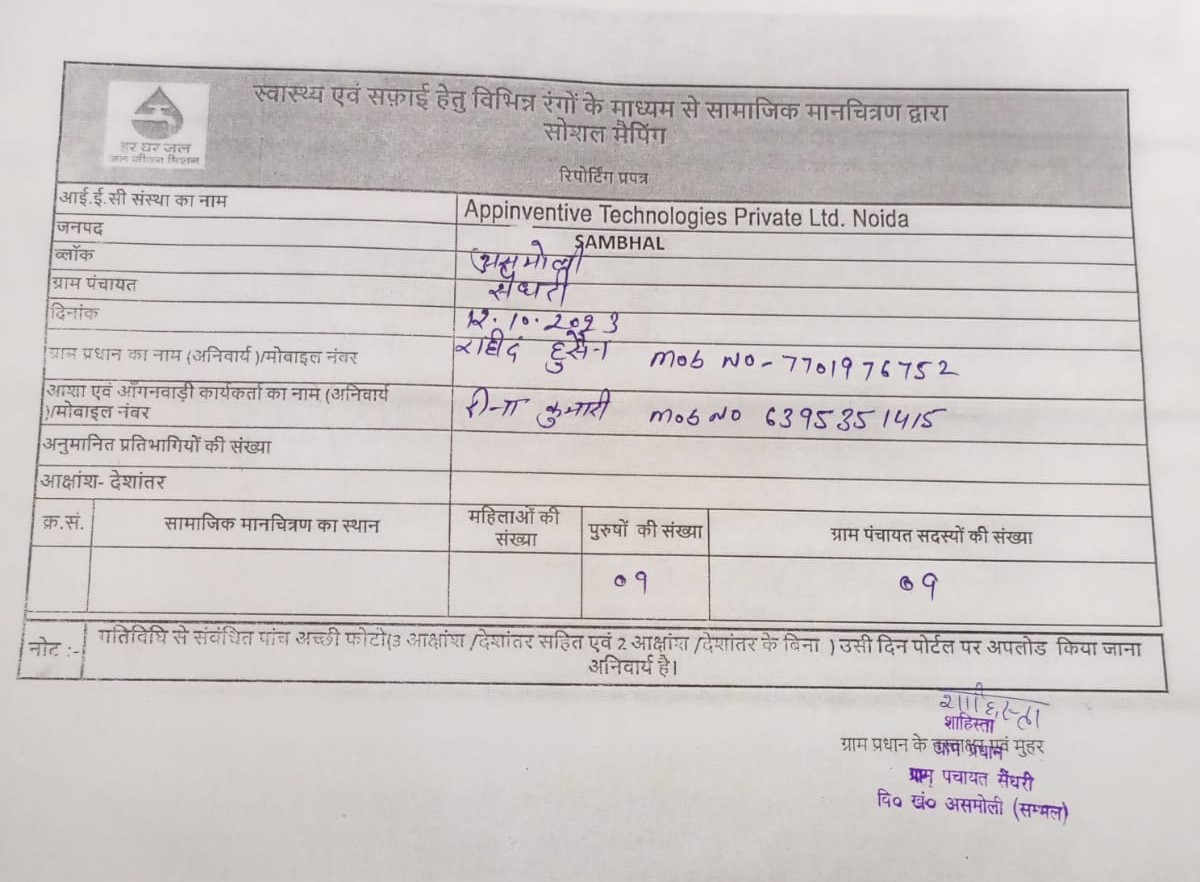 स्वास्थ्य एवं सफ़ाई हेतु विभिन्न रंगों के माध्यम से सामाजिक मानचित्रण द्वारा
सोशल मैपिंग
हर घर जल
जल जीवन मिशन
रिपोर्टिंग प्रपत्र
आई.ई.सी संस्था का नाम Appinventive Technologies Private Ltd. Noida
जनपद SAMBHAL
ब्लॉक असमोली
ग्राम पंचायत सैंधरी
दिनांक 12.10.2023
ग्राम प्रधान का नाम (अनिवार्य )/मोबाइल नंबर राहीद हुसैन mob NO-7701976752
आशा एवं आँगनवाड़ी कार्यकर्ता का नाम (अनिवार्य
)/मोबाइल नंबर रीना कुमारी mob NO 6395351415
अनुमानित प्रतिभागियों की संख्या
आक्षांश- देशांतर
क्र.सं. सामाजिक मानचित्रण का स्थान महिलाओं की संख्या पुरुषों की संख्या ग्राम पंचायत सदस्यों की संख्या
०९ ०९
नोट :- गतिविधि से संबंधित पांच अच्छी फोटो(3 आक्षांश /देशांतर सहित एवं 2 आक्षांश /देशांतर के बिना ) उसी दिन पोर्टल पर अपलोड किया जाना
अनिवार्य है।
शाहिस्ता
शाहिस्ता
ग्राम प्रधान के हस्ताक्षर एवं मुहर
ग्राम प्रधान
ग्राम पचायत सैंधरी
वि० खं० असमोली (सम्भल)